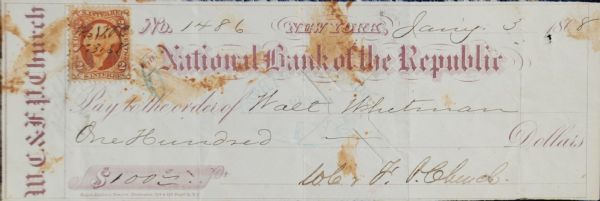 No. 1486 NEW YORK, Jany 3 1868
National Bank of the Republic
Pay to the order of Walt Whitman
One Hundred Dollars
$100
W.C. & F. P. Church
W.C. & F.P. Church